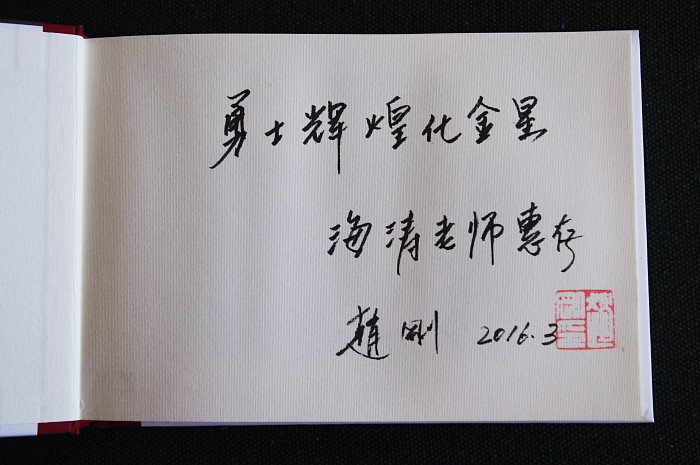 勇士辉煌化金星
海涛老师惠存
趙刚 2016.3